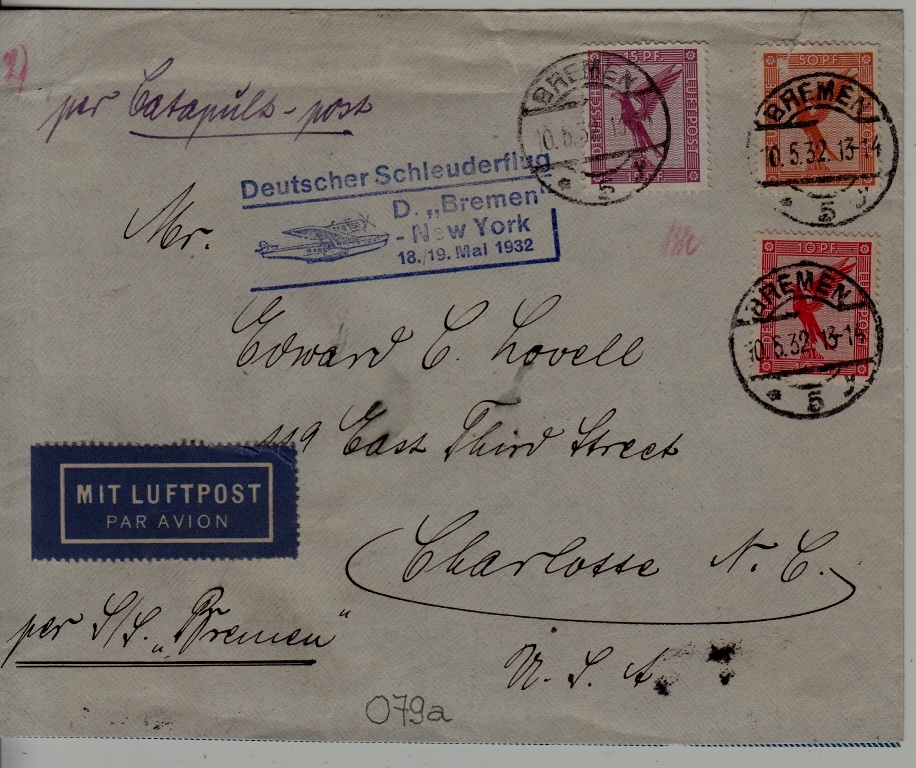 2)
per Catapult-post
15 PF
DEUTSCHE FLUGPOST
50 PF.
BREMEN
10.5.32.13-14
* 5 j
BREMEN
10.5.32.13-14
* 5 j
Deutscher Schleuderflug
D. „Bremen"
- New York
18./19. Mai 1932
Mr.
10 PF.
BREMEN
10.5.32.13-14
* 5 j
Edward C. Lovell
119 East Third Street
MIT LUFTPOST
PAR AVION
Charlotte N. C.
per S/S. „Bremen"
U. S. A
079a